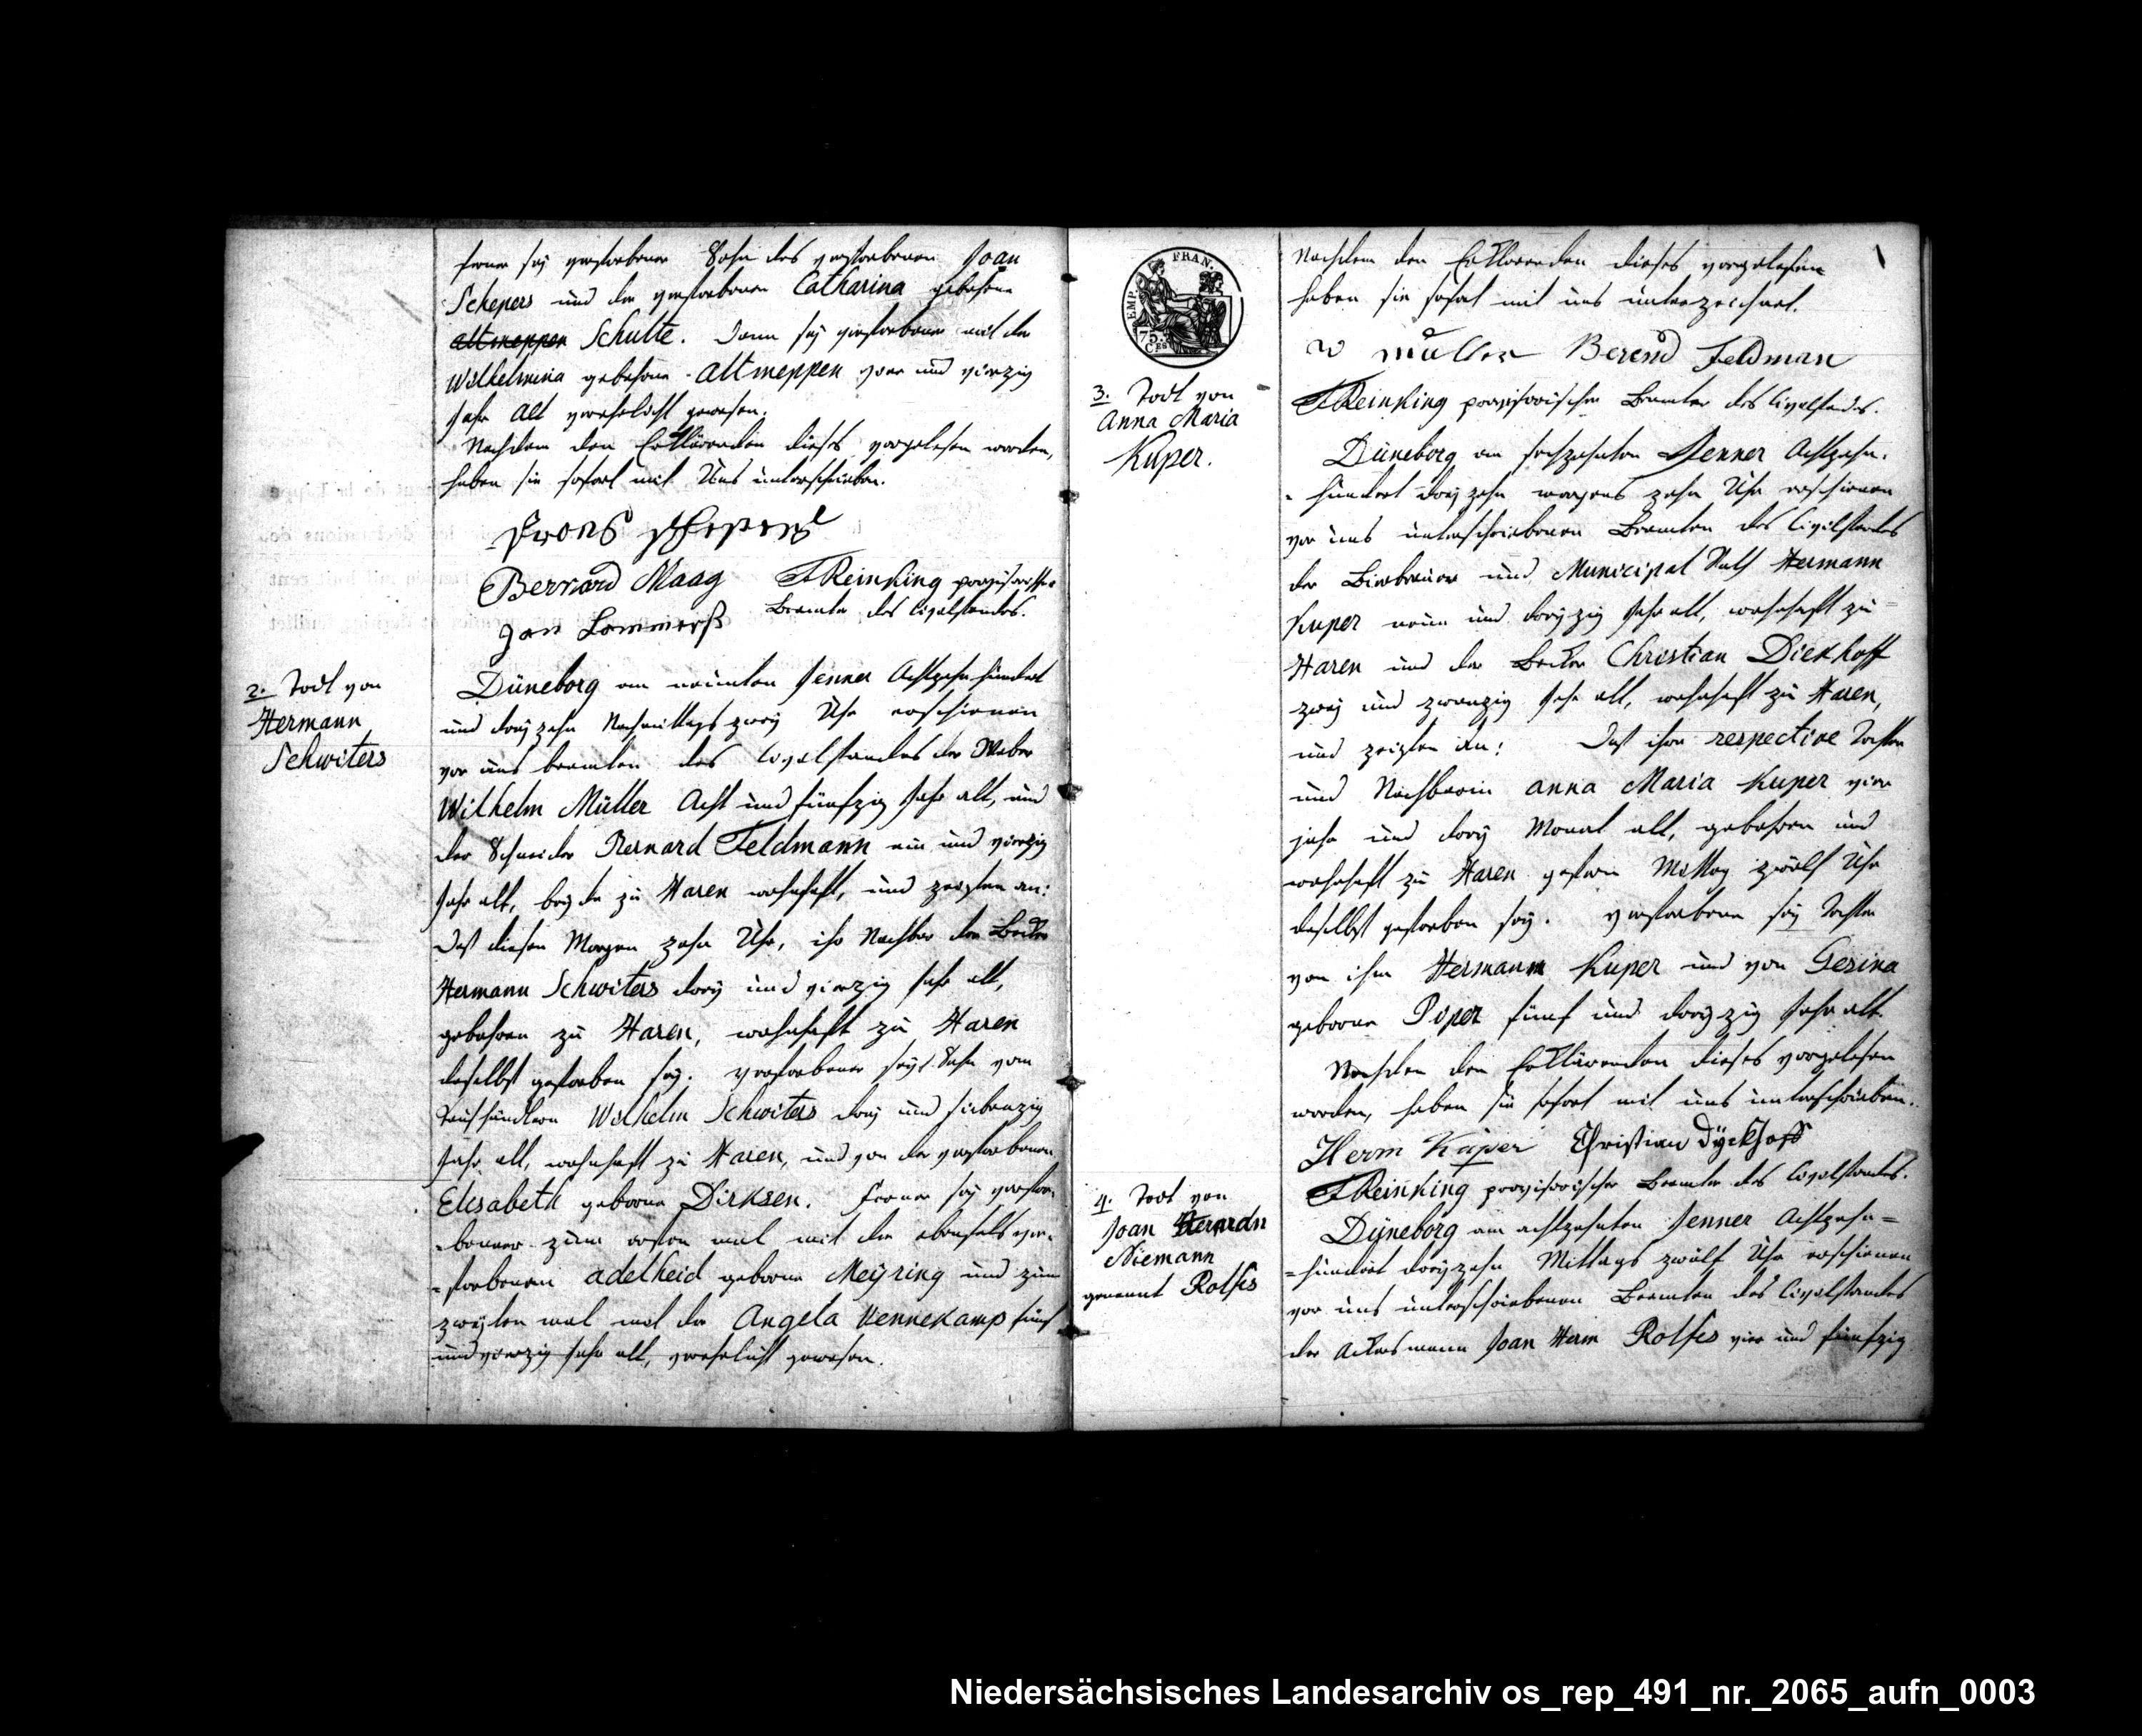 ferner sey verstorbener Sohn des verstorbenen Joan
Schepers und der verstorbenen Catharina gebohrne
altmeppen Schulte. Dann sey verstorbener mit der
Wilhelmina gebohrne Altmeppen vier und vierzig
Jahr alt verehelicht gewesen.
Nachdem den Erklärenden dieses vorgelesen worden,
haben sie sofort mit Uns unterschrieben.
Bernard Maag FReinking provisorischer
Beamte des Civilstandes.
Jan Lammerß
2. Todt von
Hermann
Schwiters
Düneborg am neunten Jenner Achtzehnhundert
und dreyzehn Nachmittags zwey Uhr erschienen
vor uns beamten des Civilstandes der Weber
Wilhelm Müller Acht und fünfzig Jahr alt, und
der Schneider Bernard Feldmann ein und vierzig
Jahr alt, beyde zu Haren wohnhaft, und zeigten an:
Daß diesen Morgen zehn Uhr, ihr Nachbar der Becker
Hermann Schwiters drey und vierzig Jahr alt,
gebohren zu Haren, wohnhaft zu Haren
daselbst gestorben sey. Verstorbener seye Sohn vom
Wilhelm Schwiters drey und siebenzig
Jahr alt, wohnhaft zu Haren, und von der verstorbenen
Elisabeth geborne Dirksen. Ferner sey verstor-
-bener zum ersten mal mit der ebenfals ver-
-storbenen adelheid geborne Meÿring und zum
zweyten mal mit der Angela Vennekamp fünf
und vierzig Jahr alt, verehelicht gewesen.
FRAN.
EMP.
75
CES
3. Todt von
Anna Maria
Kuper.
4. Todt von
Joan
Niemann
genannt Rolfes
Nachdem den Erklärenden dieses vorgelesen
haben sie sofort mit uns unterzeichnet.
W müller Berend Feldman
FReinking provisorischer Beamter des Civilstandes.
Düneborg am sechszehnten Jenner Achtzehn-
-hundert dreyzehn morgens zehn Uhr erschienen
vor uns unterschriebenen Beamten des Civilstandes
der Bierbrauer und Municipal Rath Hermann
Kuper neun und dreyzig Jahr alt, wohnhaft zu
Haren und der Becker Christian Diekhoff
zwey und zwanzig Jahr alt, wohnhaft zu Haren,
und zeigten an: Daß ihre respective Tochter
und Nachbarin anna Maria Kuper vier
jahr und drey Monat alt, gebohren und
wohnhaft zu Haren gestern Mittag zwölf Uhr
daselbst gestorben sey. Verstorbene sey Tochter
von ihm Hermann Kuper und von Gesina
geborne Pöper fünf und dreyzig Jahr alt.
Nachdem den Erklärenden dieses vorgelesen
worden, haben sie sofort mit uns unterschrieben.
Herm Küper Christian Dÿckhoff
FReinking provisorischer Beamte des Civilstandes.
Düneborg am achtzehnten Jenner Achtzehn=
=hundert dreyzehn Mittags zwölf Uhr erschienen
vor uns unterschriebenen Beamten des Civilstandes
der Ackersmann Joan Herm Rolfes vier und fünfzig
Niedersächsisches Landesarchiv os_rep_491_nr._2065_aufn_0003